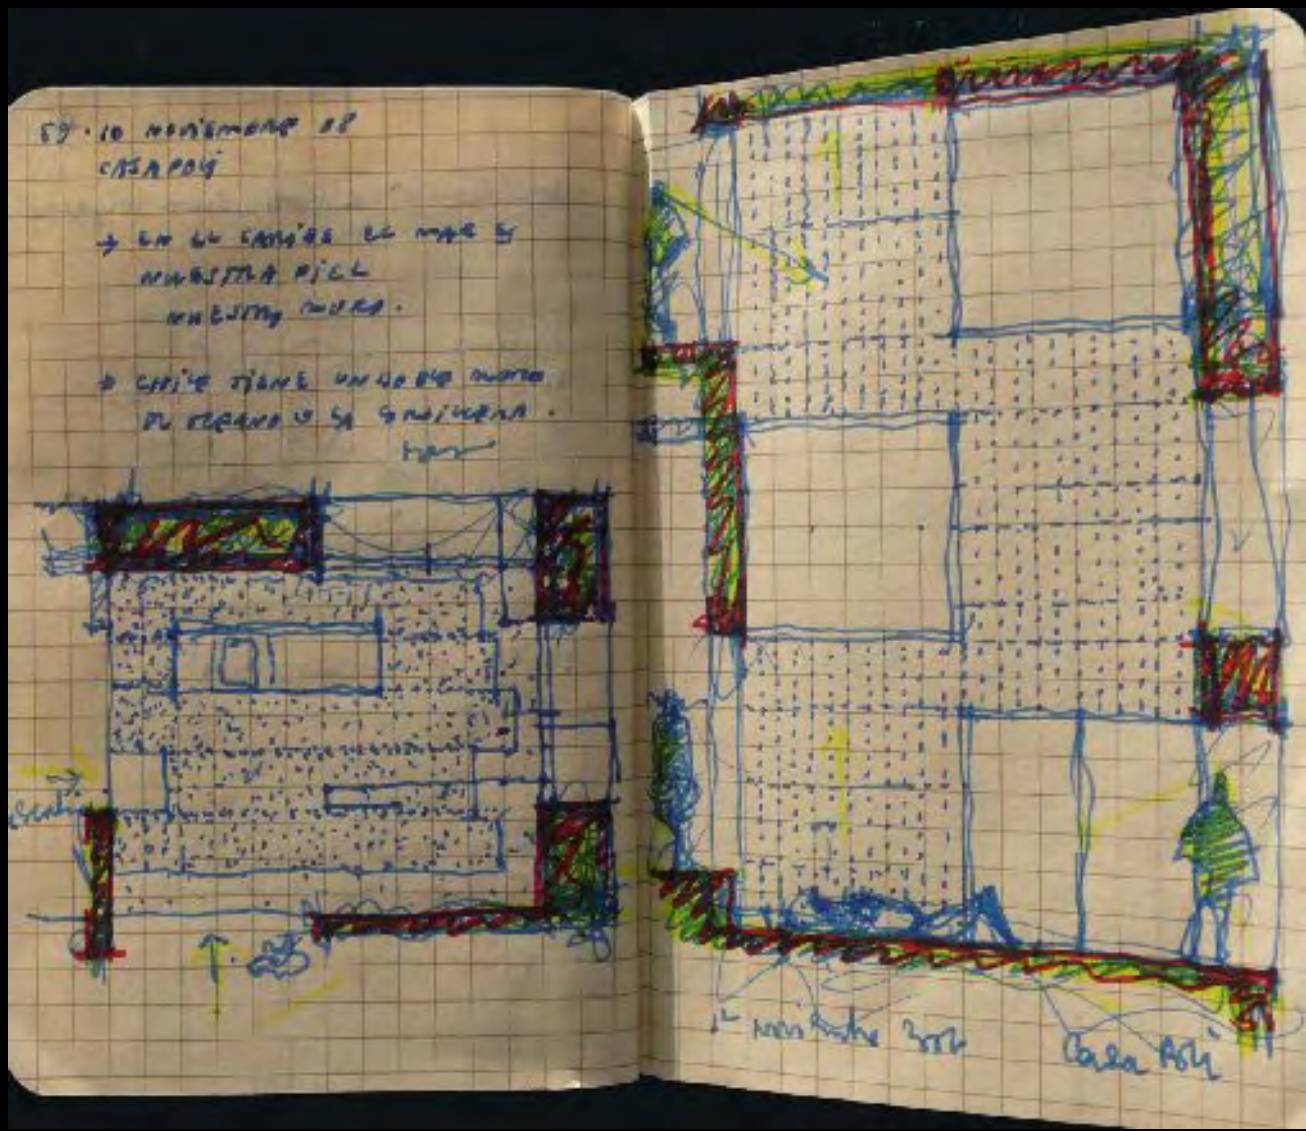 10 NOVIEMBRE 08
CASA POLI
→ EN EL CARIBE EL MAR ES
NUESTRA PIEL
NUESTRO MURO.
→ CHILE TIENE UN DOBLE MURO
EL OCEANO Y LA CORDILLERA.
Casa Poli